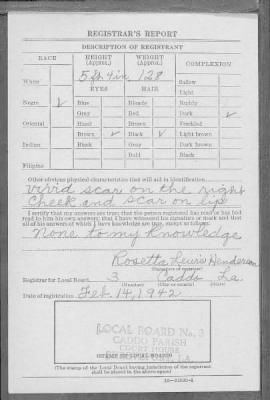 REGISTRAR'S REPORT
DESCRIPTION OF REGISTRANT
RACE HEIGHT (Approx.) WEIGHT (Approx.) COMPLEXION
White 5 ft 4 in 128 Sallow
EYES HAIR Light
Negro ✓ Blue Blonde Ruddy
Gray Red Dark ✓
Oriental Hazel Brown Freckled
Brown ✓ Black ✓ Light brown
Indian Black Gray Dark brown
Bald Black
Filipino
Other obvious physical characteristics that will aid in identification
vivid scar on the right
Cheek and scar on lip
I certify that my answers are true; that the person registered has read or has had
read to him his own answers; that I have witnessed his signature or mark and that
all of his answers of which I have knowledge are true, except as follows:
None to my Knowledge
Rosetta Lewis Henderson
(Signature of registrar)
Registrar for Local Board 3 Caddo La.
(Number) (City or county) (State)
Date of registration Feb. 14, 1942
LOCAL BOARD No. 3
CADDO PARISH
COURT HOUSE
(STAMP OF LOCAL BOARD)
LA.
(The stamp of the Local Board having jurisdiction of the registrant
shall be placed in the above space)